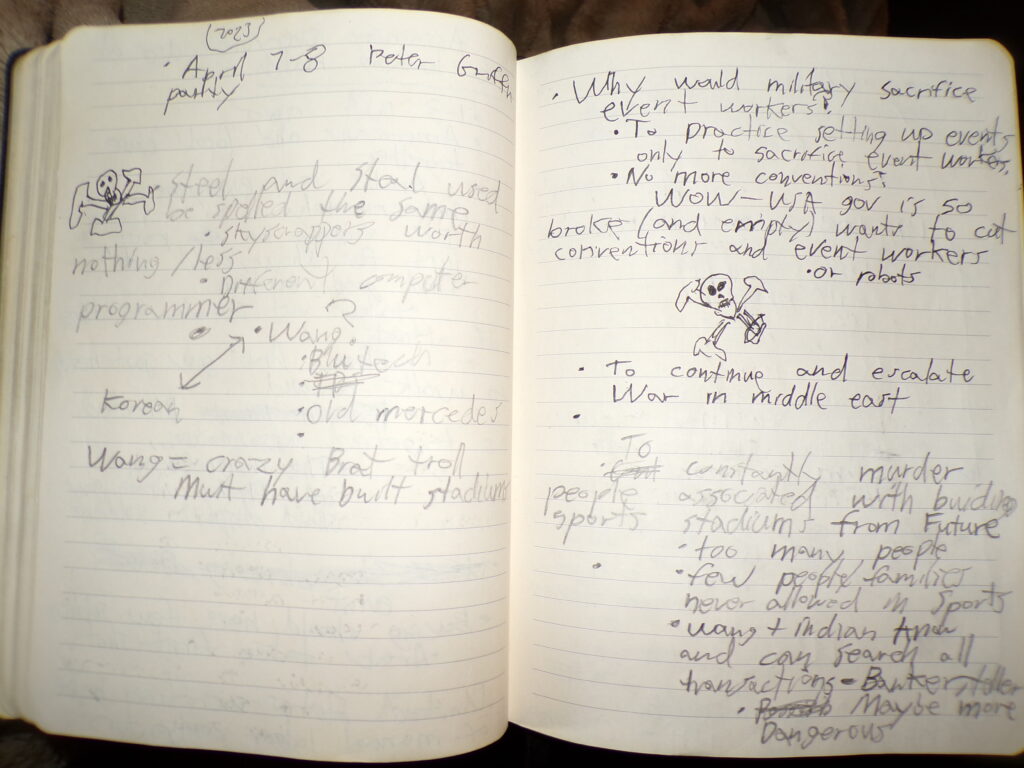 (2023)
• April 7-8 Peter Griffin
party
steel and steal used
be spelled the same
• skyscrappers worth
nothing / less
• Different computer
programmer
• Wang?
• Blutech
Korean
• Old mercedes
•
Wang = crazy Brat troll
Must have built stadiums
• Why would military sacrifice
event workers?
• To practice setting up events
only to sacrifice event workers.
• No more conventions?
WOW - USA gov is so
broke (and empty) wants to cut
conventions and event workers
• or robots
• To continue and escalate
War in middle east
•
To
• constantly murder
people associated with building
sports stadiums from Future
• too many people
• few people/families
never allowed in sports
• Wang + indian
and can search all
transactions = Banker/teller
• Maybe more
Dangerous